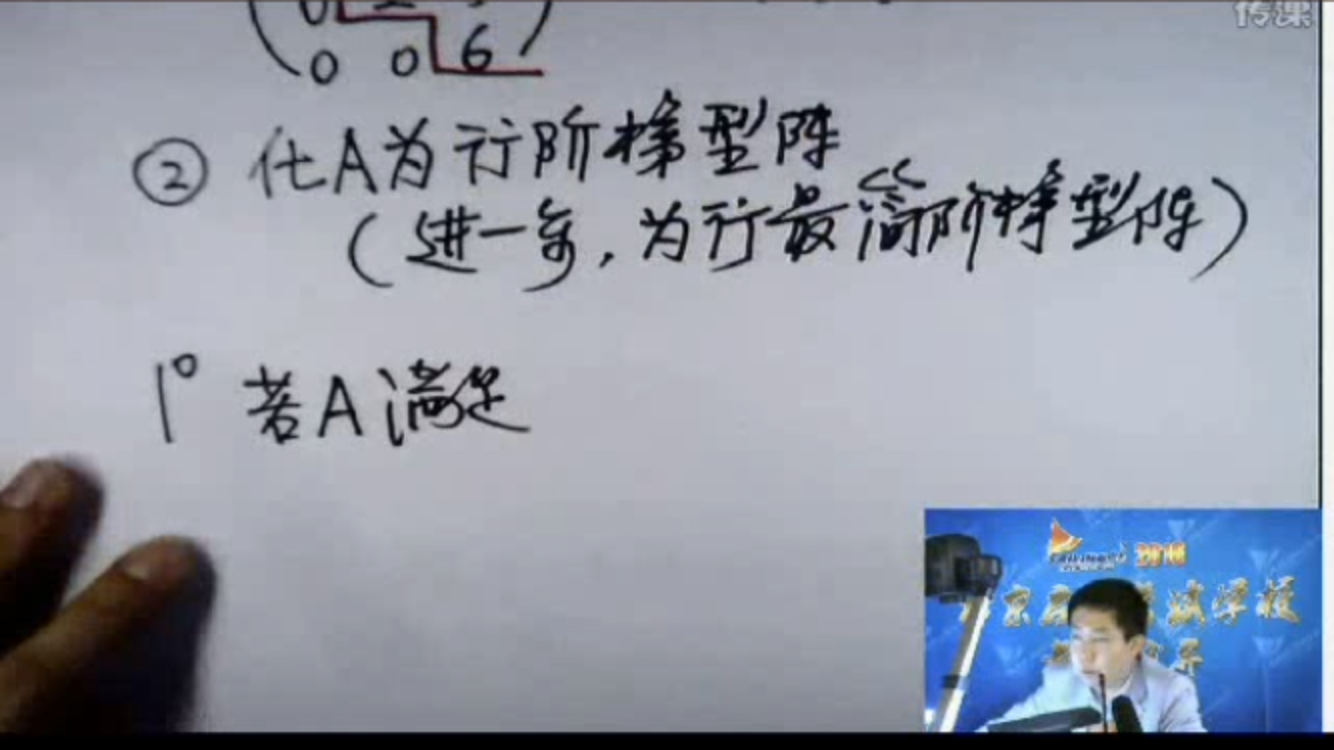 传课
0 0 6
② 化A为行阶梯型阵
(进一步,为行最简阶梯型阵)
1° 若A满足
2018